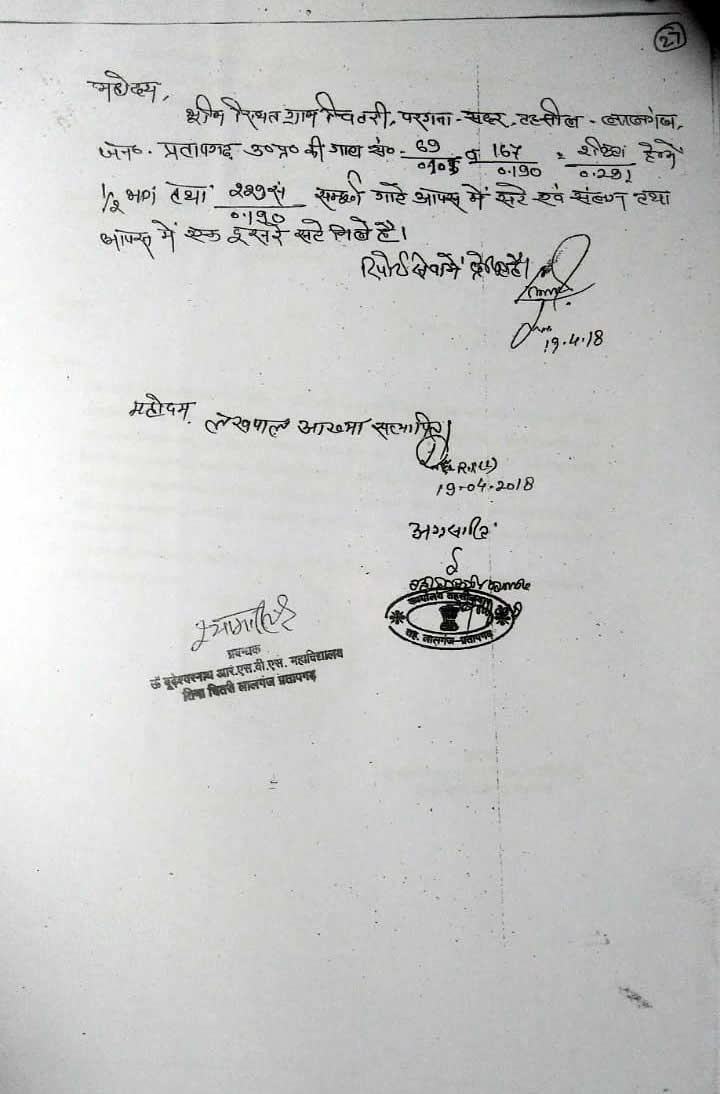 27
महोदय,
भूमि स्थित ग्राम चितरी, परगना - सदर, तहसील - लालगंज,
जन०. प्रतापगढ़ उ०प्र० की गाटा सं०- 69 व 167
0.190 0.291
1/2 भाग तथा सम्पूर्ण गाटे आपस में सटे एवं संलग्न तथा
0.190
आपस में एक दूसरे सटे मिले है।
रिपोर्ट सेवामें प्रेषित है।
19.4.18
महोदय, लेखपाल आख्या सत्यापित
19-04-2018
अग्रसारित
कार्यालय तहसीलदार
तह. लालगंज-प्रतापगढ़
प्रबन्धक
ऊँ बूढ़ेश्वरनाथ आर.एस.वी.एस. महाविद्यालय
चितरी लालगंज प्रतापगढ़